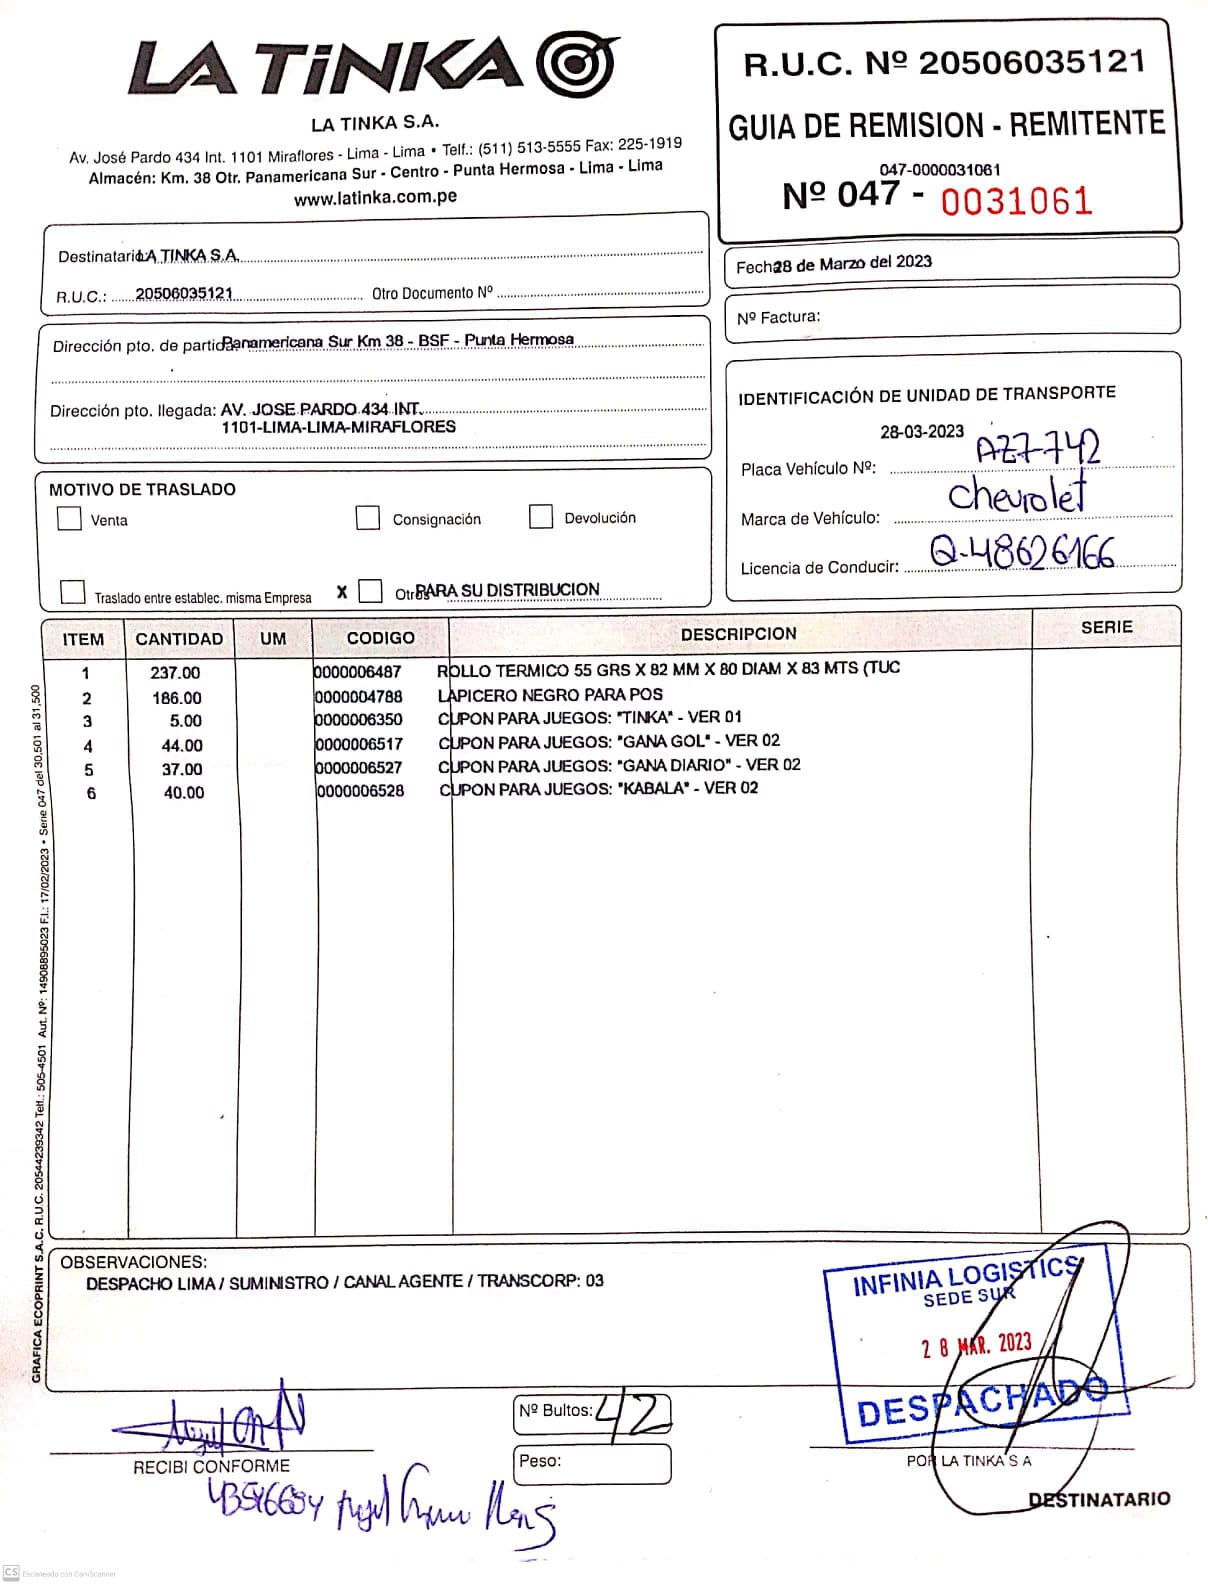 LA TiNKA
LA TINKA S.A.
Av. José Pardo 434 Int. 1101 Miraflores - Lima - Lima • Telf.: (511) 513-5555 Fax: 225-1919
Almacén: Km. 38 Otr. Panamericana Sur - Centro - Punta Hermosa - Lima - Lima
www.latinka.com.pe
R.U.C. Nº 20506035121
GUIA DE REMISION - REMITENTE
047-0000031061
Nº 047 - 0031061
Destinatario LA TINKA S.A.
R.U.C.: 20506035121 Otro Documento Nº
Fecha 28 de Marzo del 2023
Nº Factura:
Dirección pto. de partida: Panamericana Sur Km 38 - BSF - Punta Hermosa
Dirección pto. llegada: AV. JOSE PARDO 434 INT.
1101-LIMA-LIMA-MIRAFLORES
IDENTIFICACIÓN DE UNIDAD DE TRANSPORTE
28-03-2023
Placa Vehículo Nº: AZ7-742
Marca de Vehículo: Chevrolet
Licencia de Conducir: Q-48626166
MOTIVO DE TRASLADO
Venta Consignación Devolución
Traslado entre establec. misma Empresa X Otros PARA SU DISTRIBUCION
ITEM CANTIDAD UM CODIGO DESCRIPCION SERIE
1 237.00 0000006487 ROLLO TERMICO 55 GRS X 82 MM X 80 DIAM X 83 MTS (TUC
2 186.00 0000004788 LAPICERO NEGRO PARA POS
3 5.00 0000006350 CUPON PARA JUEGOS: "TINKA" - VER 01
4 44.00 0000006517 CUPON PARA JUEGOS: "GANA GOL" - VER 02
5 37.00 0000006527 CUPON PARA JUEGOS: "GANA DIARIO" - VER 02
6 40.00 0000006528 CUPON PARA JUEGOS: "KABALA" - VER 02
GRAFICA ECOPRINT S.A.C. R.U.C. 20544239342 Telf.: 505-4501 Aut. Nº: 14908895023 F.I.: 17/02/2023 • Serie 047 del 30,501 al 31,500
OBSERVACIONES:
DESPACHO LIMA / SUMINISTRO / CANAL AGENTE / TRANSCORP: 03
INFINIA LOGISTICS
SEDE SUR
28 MAR. 2023
DESPACHADO
Nº Bultos: 42
Peso:
RECIBI CONFORME
POR LA TINKA S A
DESTINATARIO
CS Escaneado con CamScanner